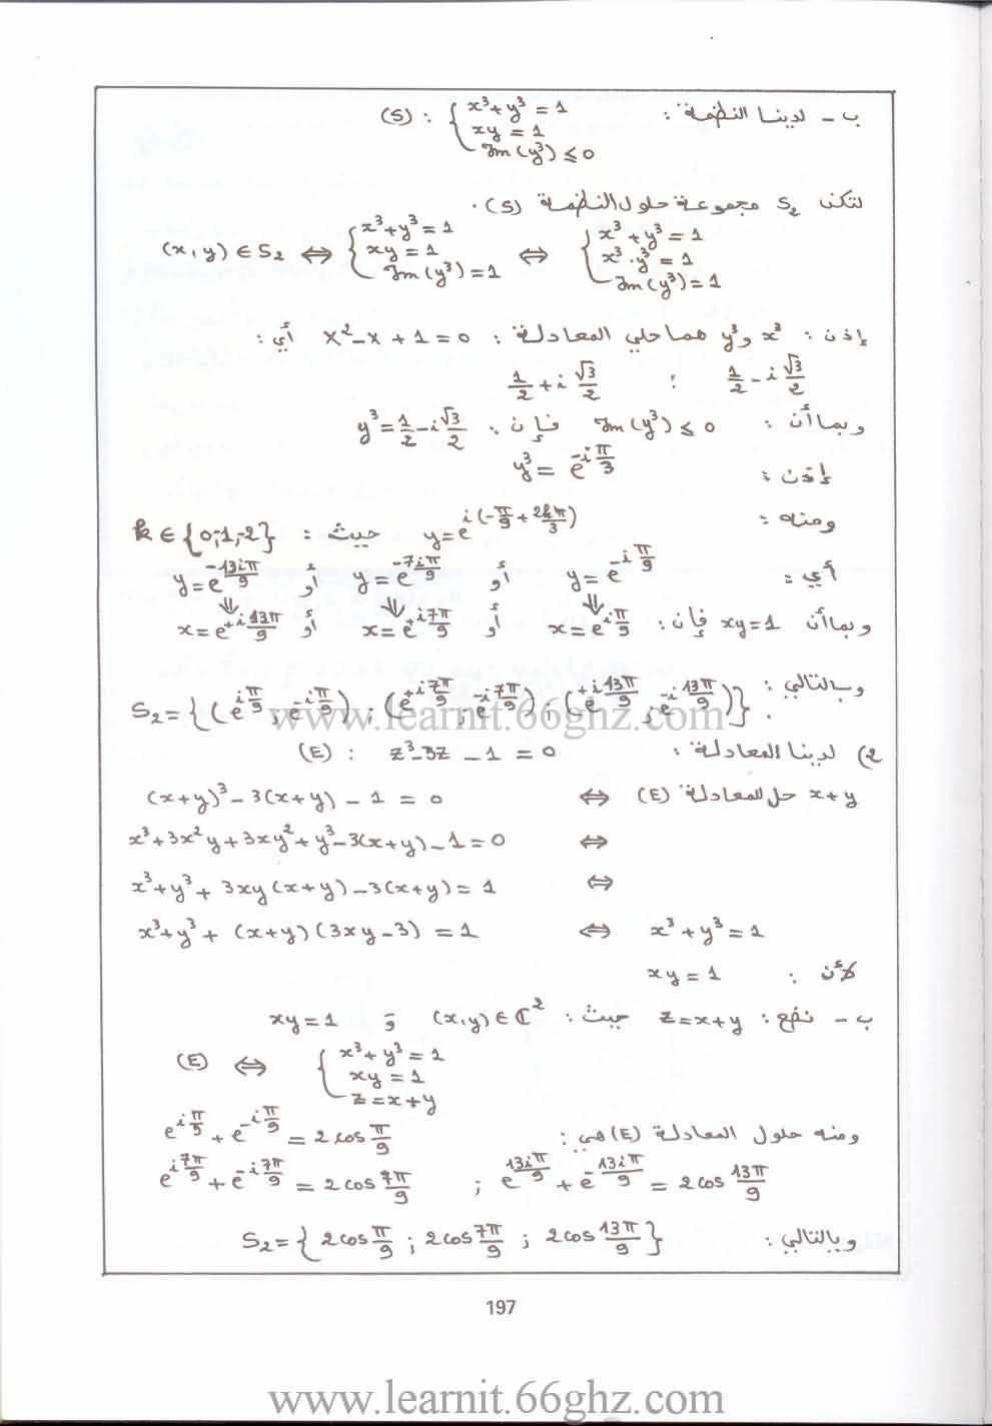 ب - لدينا النظمة : (S) : { x³+y³ = 1
xy = 1
Im(y³) ≤ 0
لتكن S₂ مجموعة حلول النظمة (S).
(x,y) ∈ S₂ ⇔ { x³+y³ = 1 ; xy = 1 ; Im(y³) = 1 ⇔ { x³+y³ = 1 ; x³·y³ = 1 ; Im(y³) = 1
إذن : x³ و y³ هما حلي المعادلة : X²-X+1=0 أي :
1/2 - i√3/2 ; 1/2 + i√3/2
وبما أن : Im(y³) ≤ 0 فإن : y³ = 1/2 - i√3/2
إذن : y³ = e^(-iπ/3)
ومنه : y = e^(i(-π/9 + 2kπ/3)) حيث : k ∈ {0;-1;-2}
أي : y = e^(-iπ/9) أو y = e^(-7iπ/9) أو y = e^(-13iπ/9)
⇓ ⇓ ⇓
وبما أن xy=1 فإن : x = e^(iπ/9) أو x = e^(+i7π/9) أو x = e^(+i13π/9)
وبالتالي : S₂ = {(e^(iπ/9) ; e^(-iπ/9)) ; (e^(+i7π/9) ; e^(-i7π/9)) ; (e^(+i13π/9) ; e^(-i13π/9))}.
www.learnit.66ghz.com
2) لدينا المعادلة : (E) : z³-3z-1 = 0
x+y حل للمعادلة (E) ⇔ (x+y)³-3(x+y)-1 = 0
⇔ x³+3x²y+3xy²+y³-3(x+y)-1=0
⇔ x³+y³+3xy(x+y)-3(x+y) = 1
x³+y³+(x+y)(3xy-3) = 1 ⇔ x³+y³=1
لأن : xy = 1
ب - نضع : z=x+y حيث : (x,y) ∈ ℂ² و xy=1
(E) ⇔ { x³+y³ = 1
xy = 1
z = x+y
ومنه حلول المعادلة (E) هي : e^(iπ/9) + e^(-iπ/9) = 2cos π/9
e^(i7π/9) + e^(-i7π/9) = 2cos 7π/9 ; e^(13iπ/9) + e^(-13iπ/9) = 2cos 13π/9
وبالتالي : S₂ = {2cos π/9 ; 2cos 7π/9 ; 2cos 13π/9}
197
www.learnit.66ghz.com